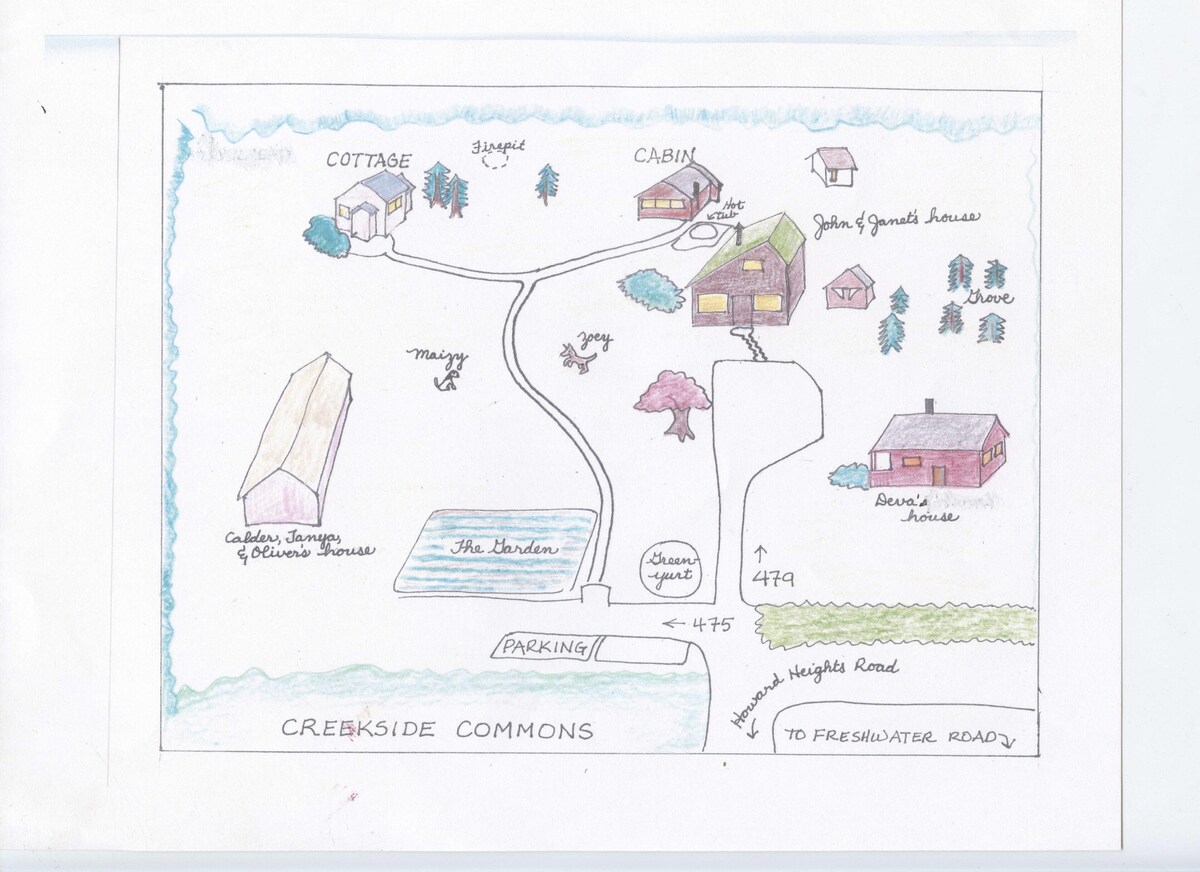 Firepit
COTTAGE
CABIN
Hot
tub
John & Janet's house
Grove
Zoey
Maizy
Deva's
house
Calder, Tanya,
& Oliver's house
The Garden
Green-
yurt
↑
479
← 475
PARKING
Howard Heights Road
CREEKSIDE COMMONS
TO FRESHWATER ROAD